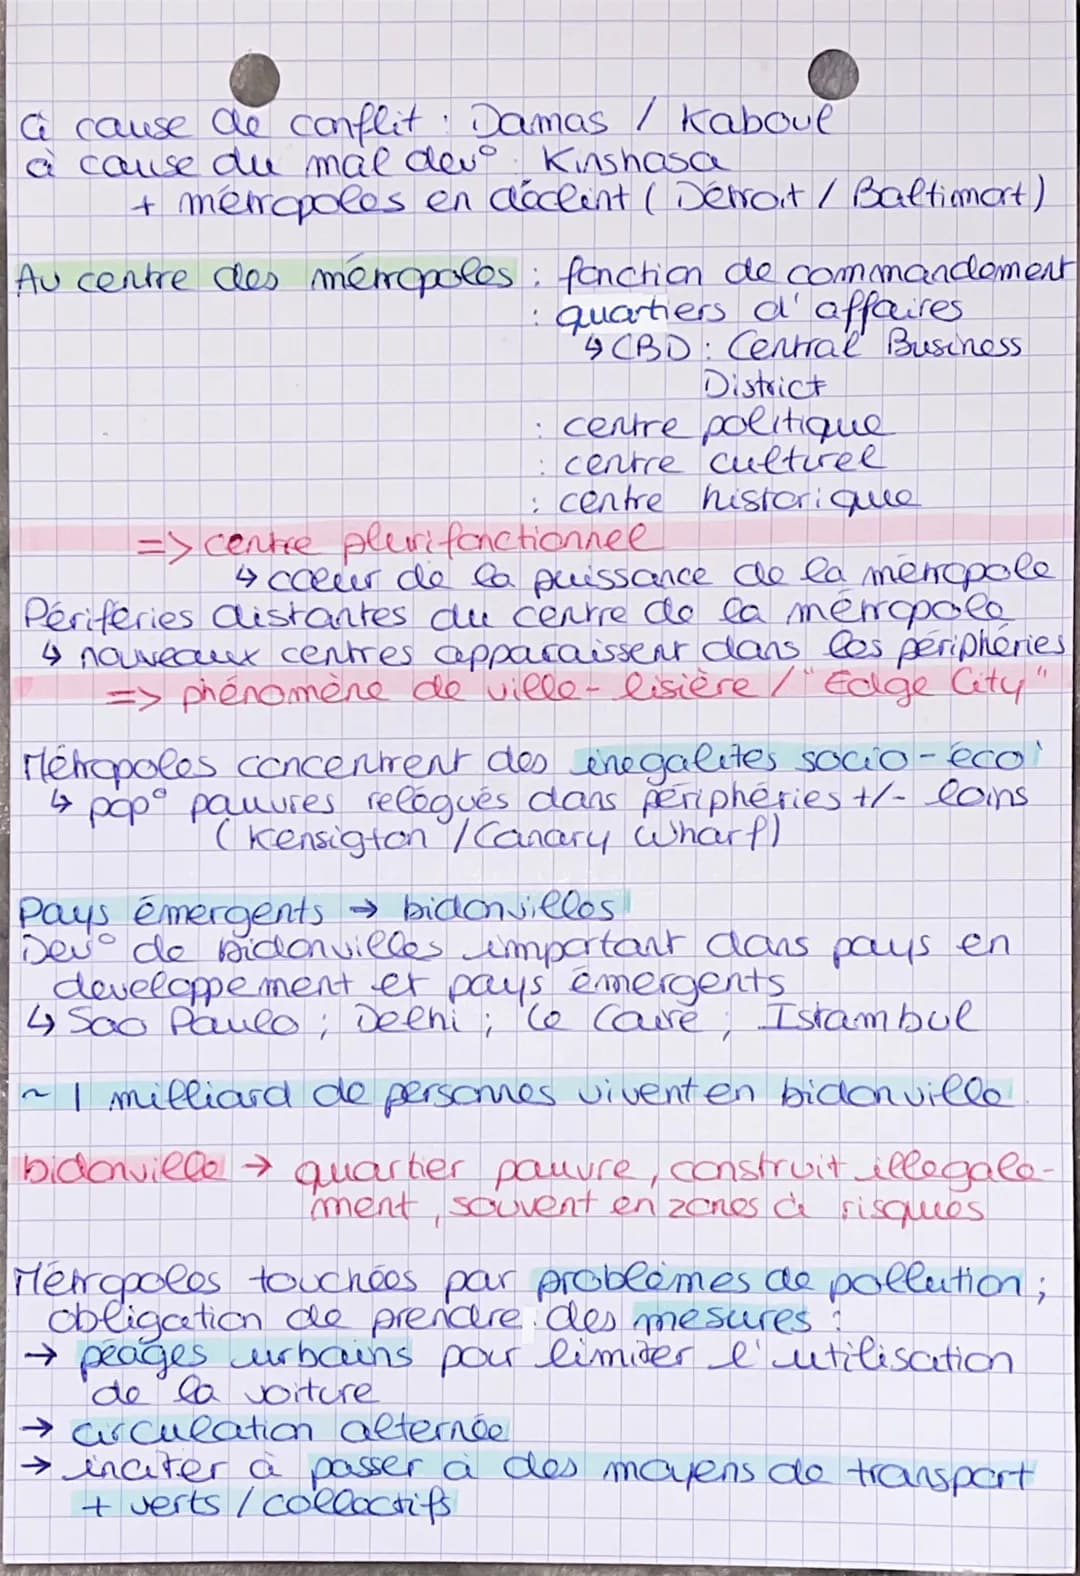 à cause de conflit : Damas / Kaboul
à cause du mal dev° : Kinshasa
+ métropoles en déclint ( Détroit / Baltimort )
Au centre des métropoles : fonction de commandement
: quartiers d'affaires
↳ CBD : Central Business
District
: centre politique
: centre culturel
: centre historique
=> centre plurifonctionnel
↳ coeur de la puissance de la métropole
Périféries distantes du centre de la métropole
↳ nouveaux centres apparaissent dans les périphéries
=> phénomène de ville-lisière / "Edge City"
Métropoles concentrent des inégalités socio-éco
↳ pop° pauvres relégués dans périphéries +/- loins
( Kensigton / Canary Wharf )
Pays émergents → bidonvilles
Dev° de bidonvilles important dans pays en
developpement et pays émergents
↳ Sao Paulo ; Delhi ; Le Caire ; Istambul
~ 1 milliard de personnes vivent en bidonville
bidonville → quartier pauvre, construit illégale-
ment, souvent en zones à risques
Métropoles touchées par problèmes de pollution ;
obligation de prendre des mesures :
→ péages urbains pour limiter l'utilisation
de la voiture
→ circulation alternée
→ inciter à passer à des moyens de transport
+ verts / collectifs